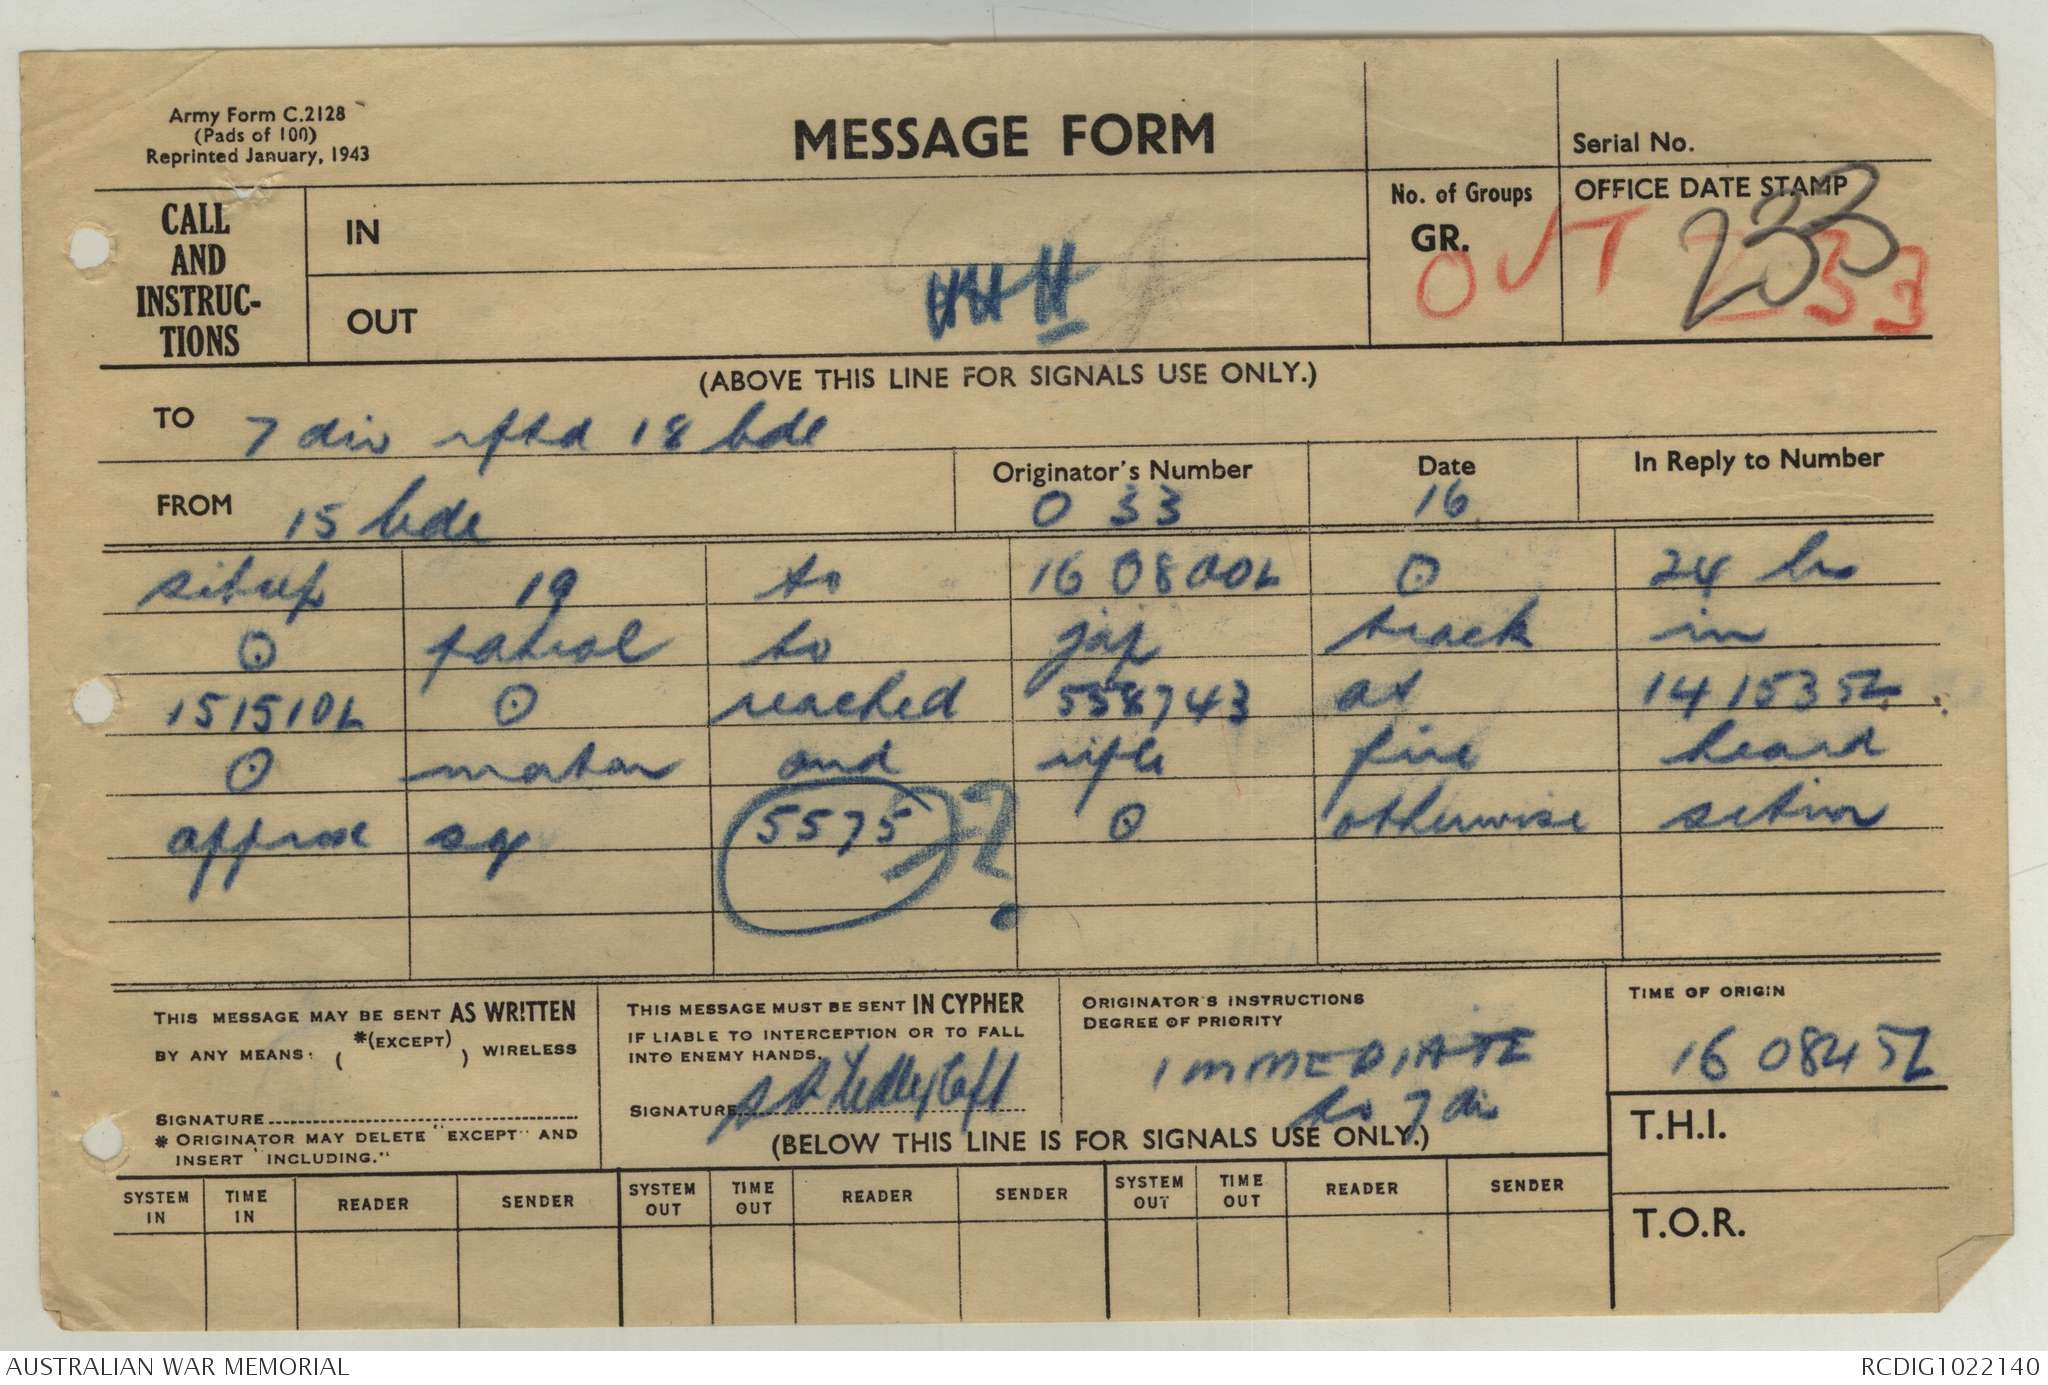 Army Form C.2128
(Pads of 100)
Reprinted January, 1943
MESSAGE FORM
Serial No.
CALL
AND
INSTRUC-
TIONS
IN
OUT
No. of Groups
GR.
OFFICE DATE STAMP
OUT 233
233
(ABOVE THIS LINE FOR SIGNALS USE ONLY.)
TO 7 div rptd 18 bde
FROM 15 bde
Originator's Number
O 33
Date
16
In Reply to Number
sitrep 19 to 160800L O 24 hr
O patrol to jap track in
151510L O reached 558743 at 141535L
O mortar and rifle fire heard
approx sq 5575 ? O otherwise
THIS MESSAGE MAY BE SENT AS WRITTEN
BY ANY MEANS. ( *(EXCEPT) ) WIRELESS
SIGNATURE
* ORIGINATOR MAY DELETE "EXCEPT" AND
INSERT "INCLUDING."
THIS MESSAGE MUST BE SENT IN CYPHER
IF LIABLE TO INTERCEPTION OR TO FALL
INTO ENEMY HANDS.
SIGNATURE
ORIGINATOR'S INSTRUCTIONS
DEGREE OF PRIORITY
IMMEDIATE
to 7 div
TIME OF ORIGIN
160845L
(BELOW THIS LINE IS FOR SIGNALS USE ONLY.)
T.H.I.
T.O.R.
SYSTEM IN TIME IN READER SENDER SYSTEM OUT TIME OUT READER SENDER SYSTEM OUT TIME OUT READER SENDER
AUSTRALIAN WAR MEMORIAL RCDIG1022140